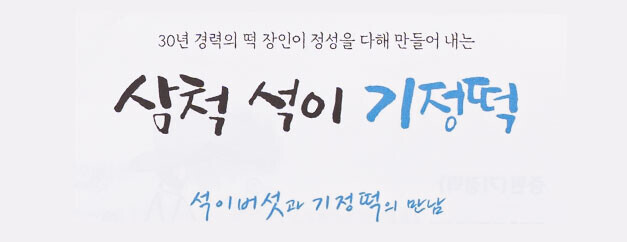 30년 경력의 떡 장인이 정성을 다해 만들어 내는
삼척 석이 기정떡
석이버섯과 기정떡의 만남